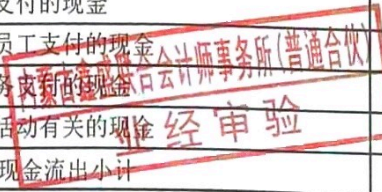 支付的现金
员工支付的现金
务支付的现金
活动有关的现金
现金流出小计
内蒙古金威联合会计师事务所(普通合伙)
业经审验